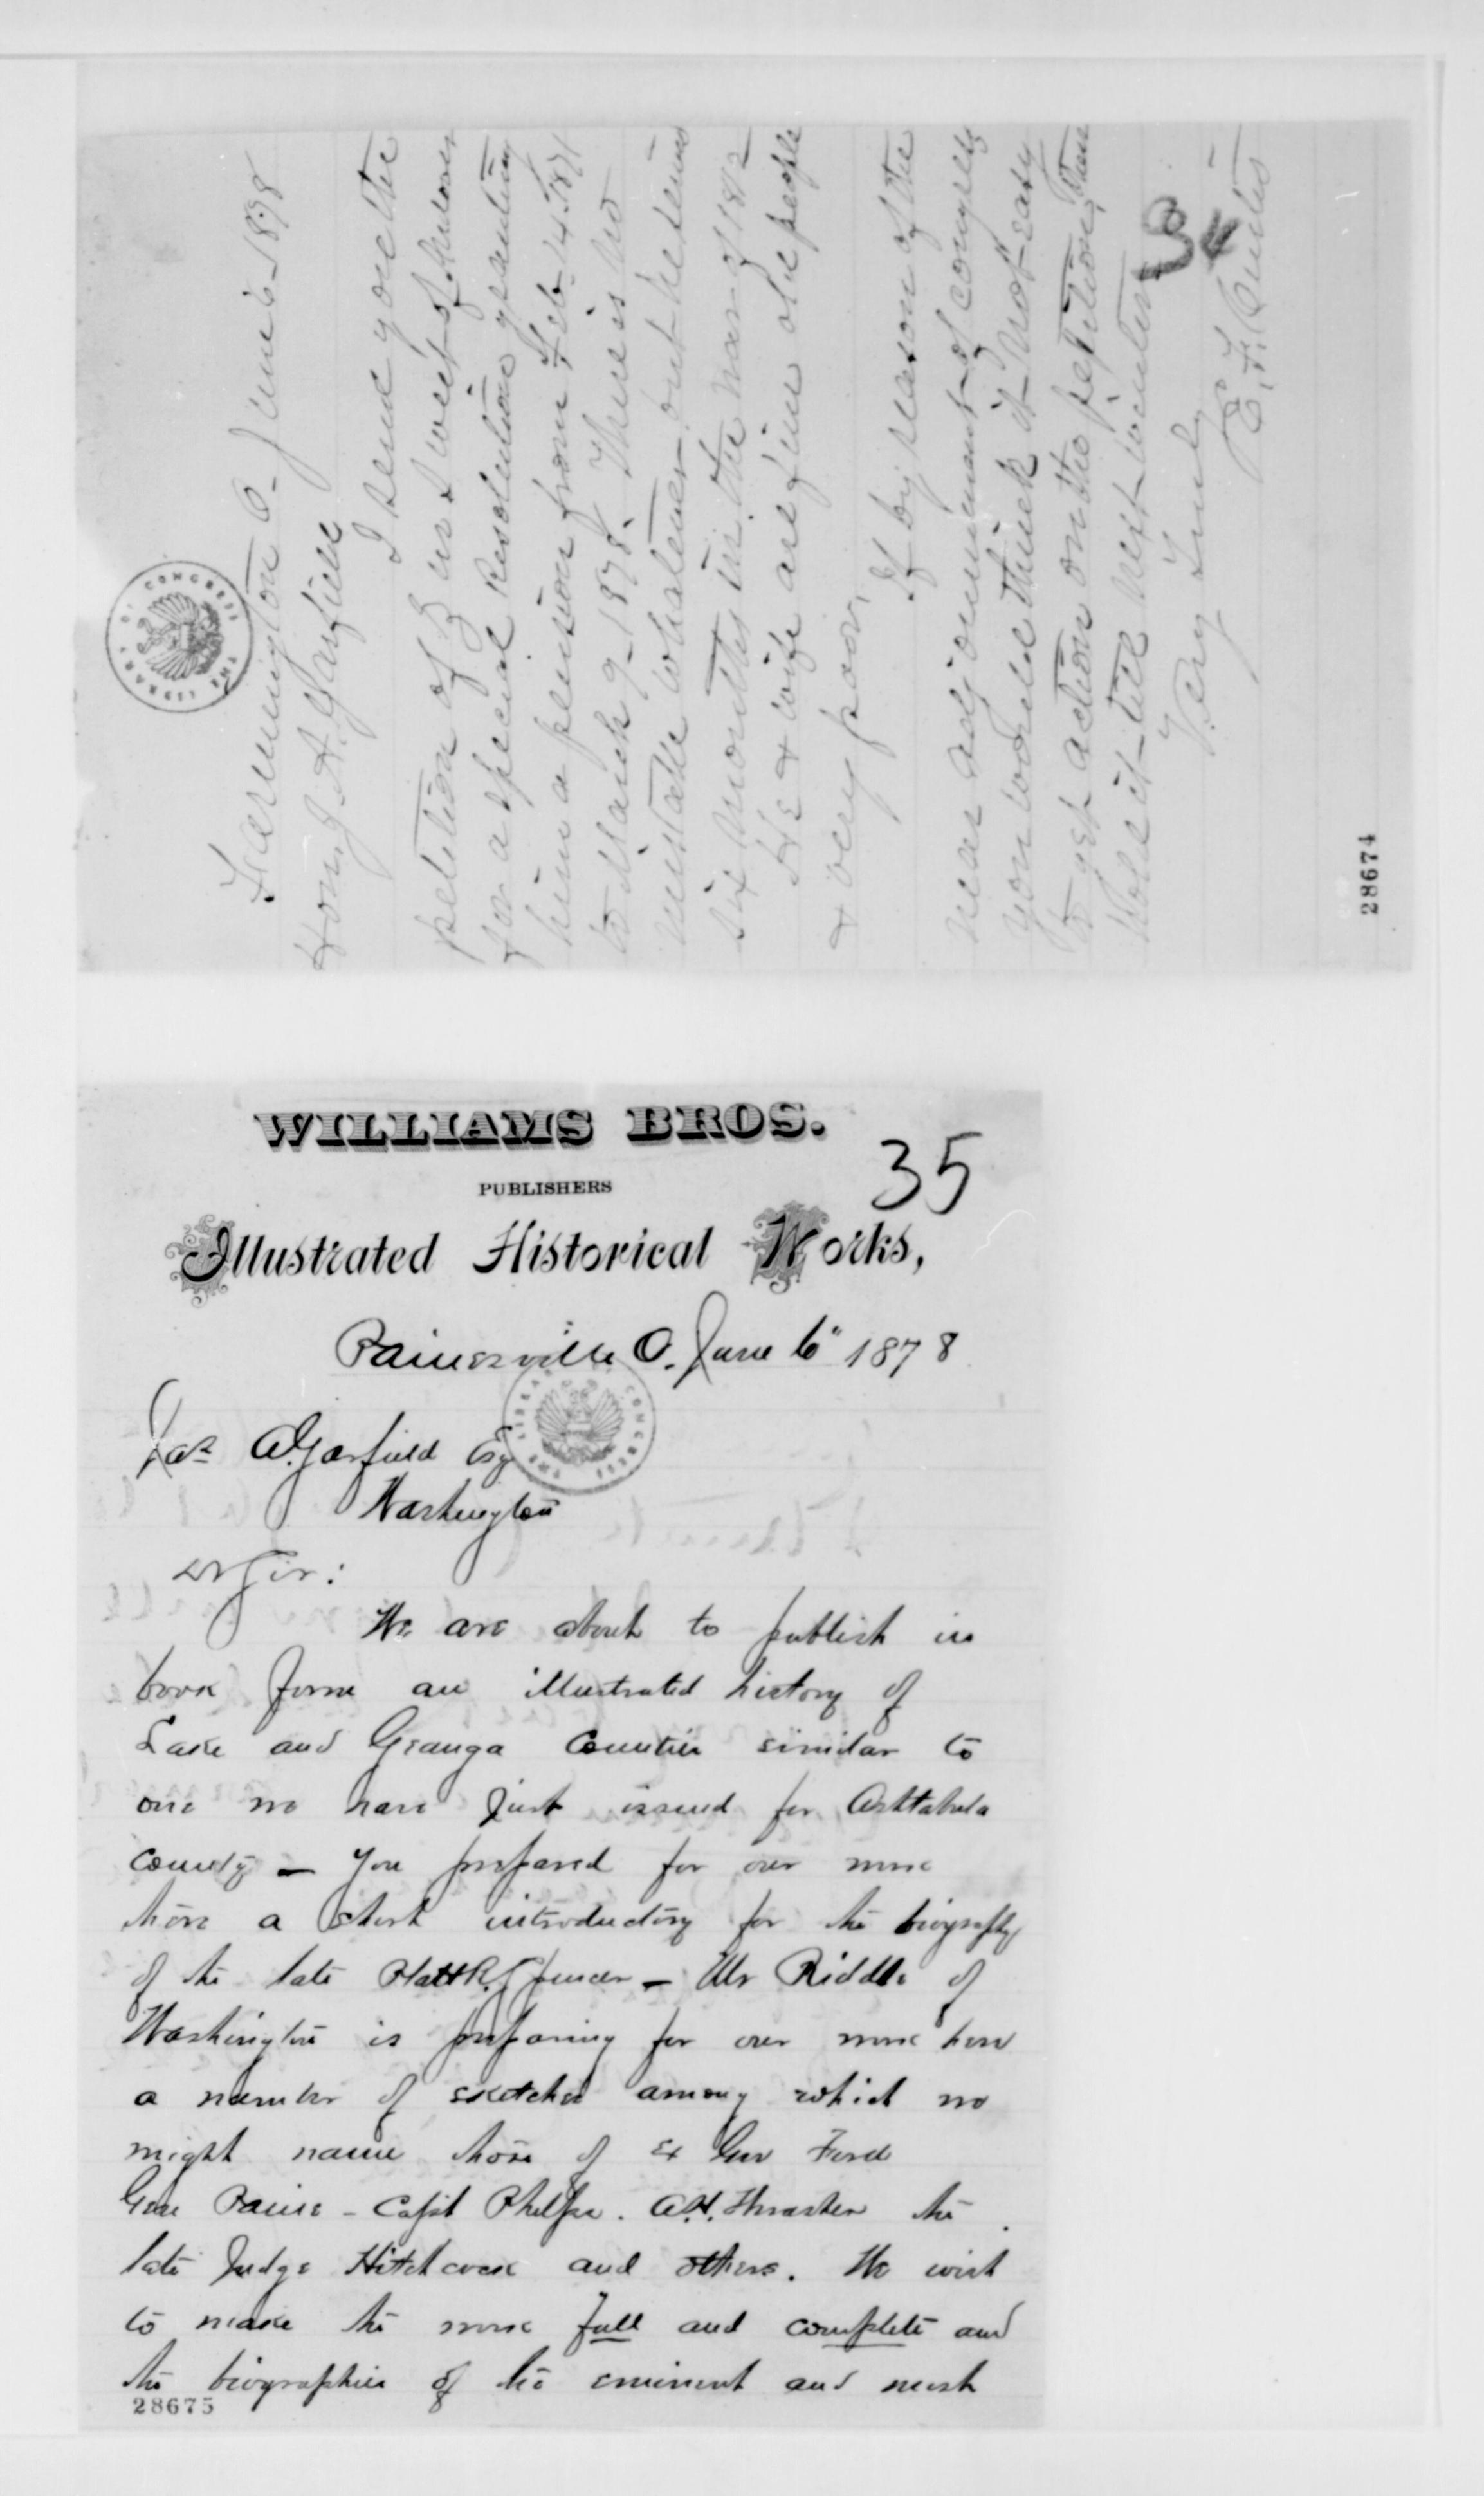 Farmington O- June 6- 1878
Hon. J. A. Garfield
I send you the
petition of
for a special Resolution granting
him a pension from Feb- 14 1871
to March 9- 1878. There is no
mistake whatever- but he served
six months in the War of 1812-
He & wife are fine old people
& very poor.
If by reason of the
near adjournment- of congress
you would think it- not- easy
to get action on the petition, then
hold it- till next- winter-
Very Truly-
E. F.
34
28674
WILLIAMS BROS.
35
PUBLISHERS
Illustrated Historical Works,
Painesville O. June 6" 1878
Jas A. Garfield Esq
Washington
Dr Sir:
We are about to publish in
book form an illustrated history of
Lake and Geauga Counties similar to
one we have just issued for Ashtabula
County — You prepared for our work
there a short introductory for the biography
of the late Platt R. Spencer — Mr Riddle of
Washington is preparing for our work here
a number of sketches among which we
might name those of Ex Gov Ford
Gen Paine - Capt Phelps. A.H. Thrasher the
late Judge Hitchcock and others. We wish
to make the work full and complete and
the biographies of the eminent and most
28675
THE LIBRARY OF CONGRESS
THE LIBRARY OF CONGRESS